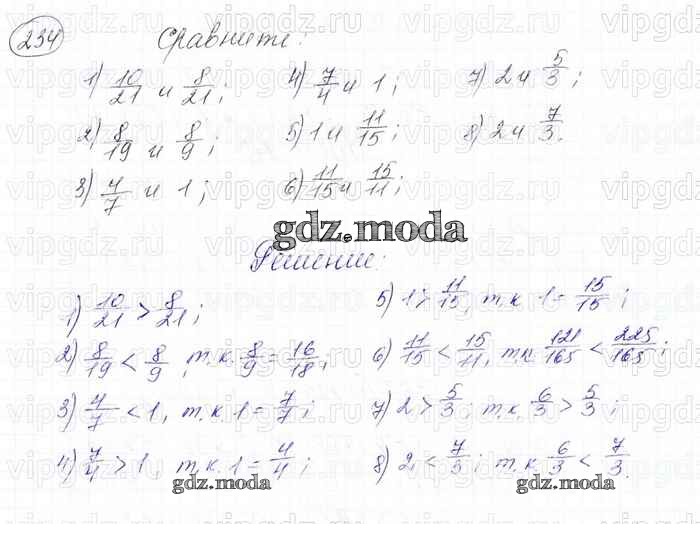 234 Сравните:
1) 10/21 и 8/21; 4) 7/4 и 1; 7) 2 и 5/3;
2) 8/19 и 8/9; 5) 1 и 11/15; 8) 2 и 7/3.
3) 4/7 и 1; 6) 11/15 и 15/11;
gdz.moda
Решение:
1) 10/21 > 8/21;
2) 8/19 < 8/9, т.к. 8/9 = 16/18;
3) 4/7 < 1, т.к. 1 = 7/7;
4) 7/4 > 1, т.к. 1 = 4/4;
gdz.moda
5) 1 > 11/15, т.к. 1 = 15/15;
6) 11/15 < 15/11, т.к. 121/165 < 225/165;
7) 2 > 5/3; т.к. 6/3 > 5/3;
8) 2 < 7/3; т.к. 6/3 < 7/3.
gdz.moda